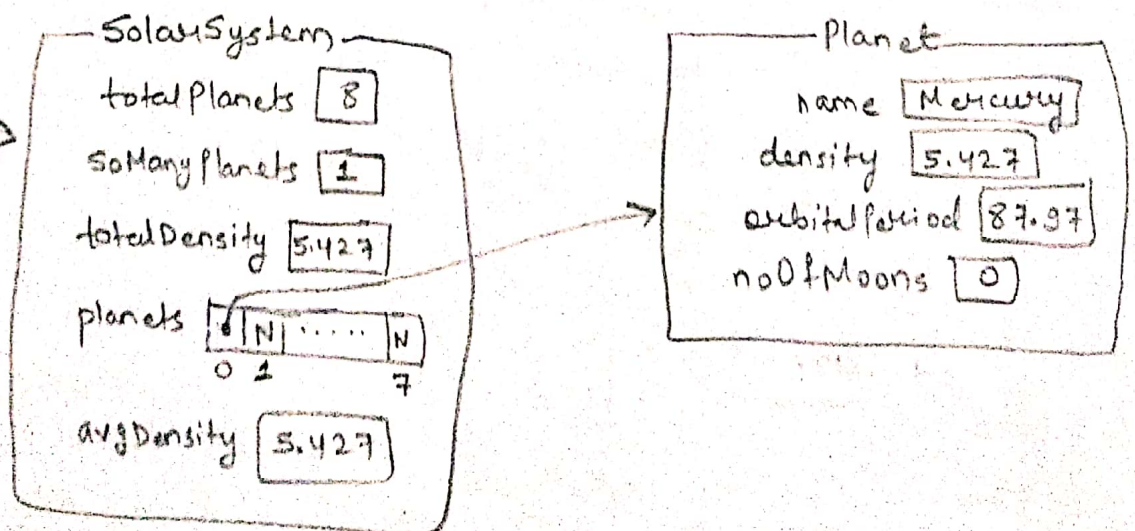 SolarSystem
totalPlanets 8
soManyPlanets 1
totalDensity 5.427
planets N ...... N
0 1 7
avgDensity 5.427
Planet
name Mercury
density 5.427
orbitalPeriod 87.97
noOfMoons 0